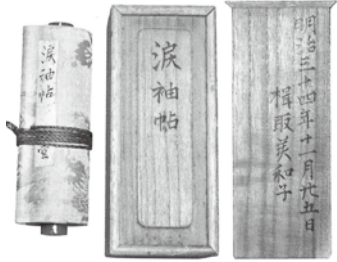 涙袖帖
堂
涙袖帖
明治三十四年十一月廿五日
楫取美和子